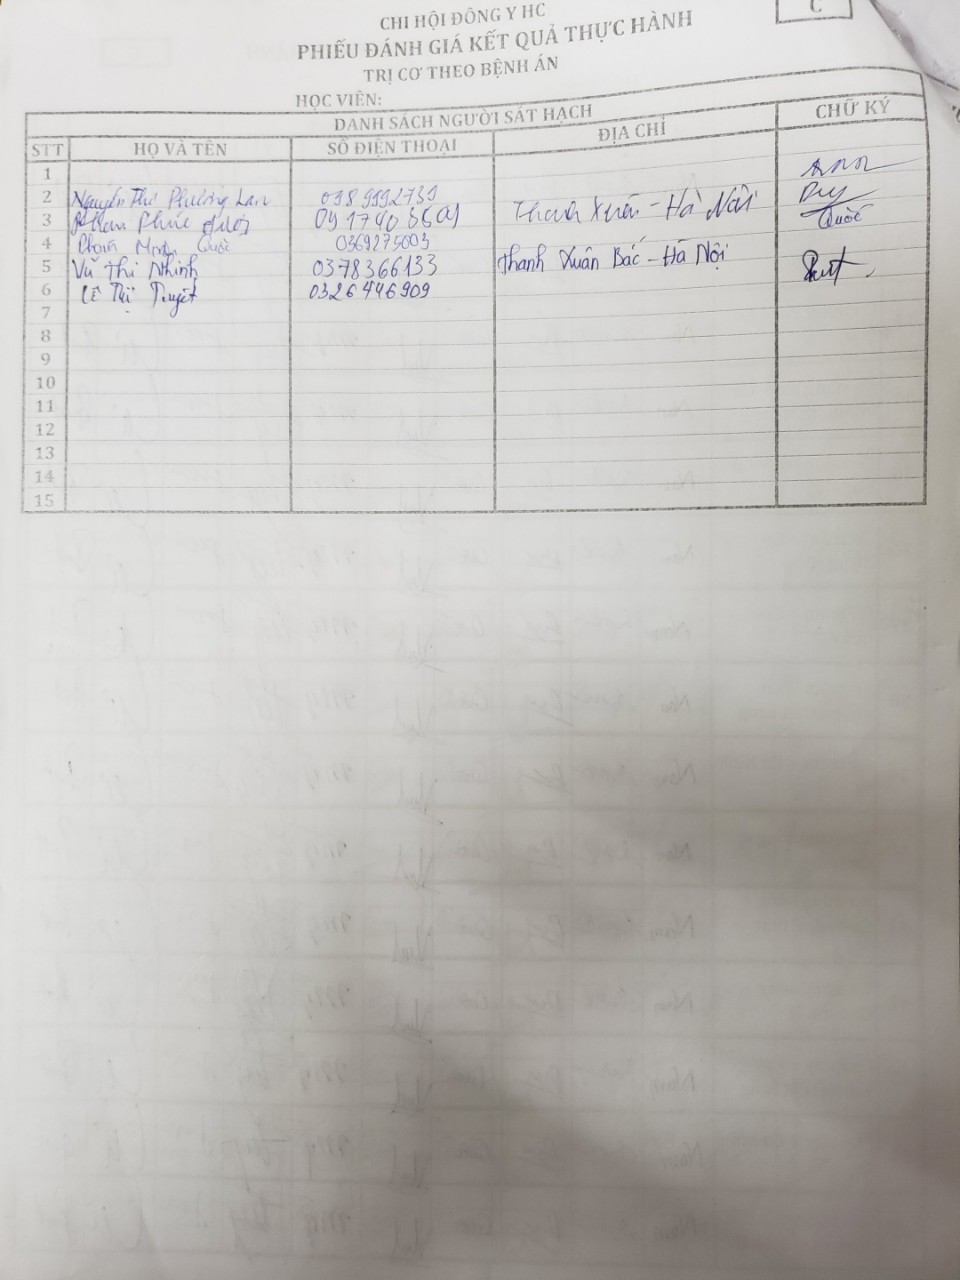 C
CHI HỘI ĐÔNG Y HC
PHIẾU ĐÁNH GIÁ KẾT QUẢ THỰC HÀNH
TRỊ CƠ THEO BỆNH ÁN
HỌC VIÊN:
DANH SÁCH NGƯỜI SÁT HẠCH
STT HỌ VÀ TÊN SỐ ĐIỆN THOẠI ĐỊA CHỈ CHỮ KÝ
1
2 Nguyễn Thị Phương Lan
3 Phúc Thanh Xuân - Hà Nội
4 Phạm Quốc 0369275003 Quốc
5 Vũ Thị Nhinh 0378366133 Thanh Xuân Bắc - Hà Nội
6 Lê Thị Tuyết 0326446909
7
8
9
10
11
12
13
14
15